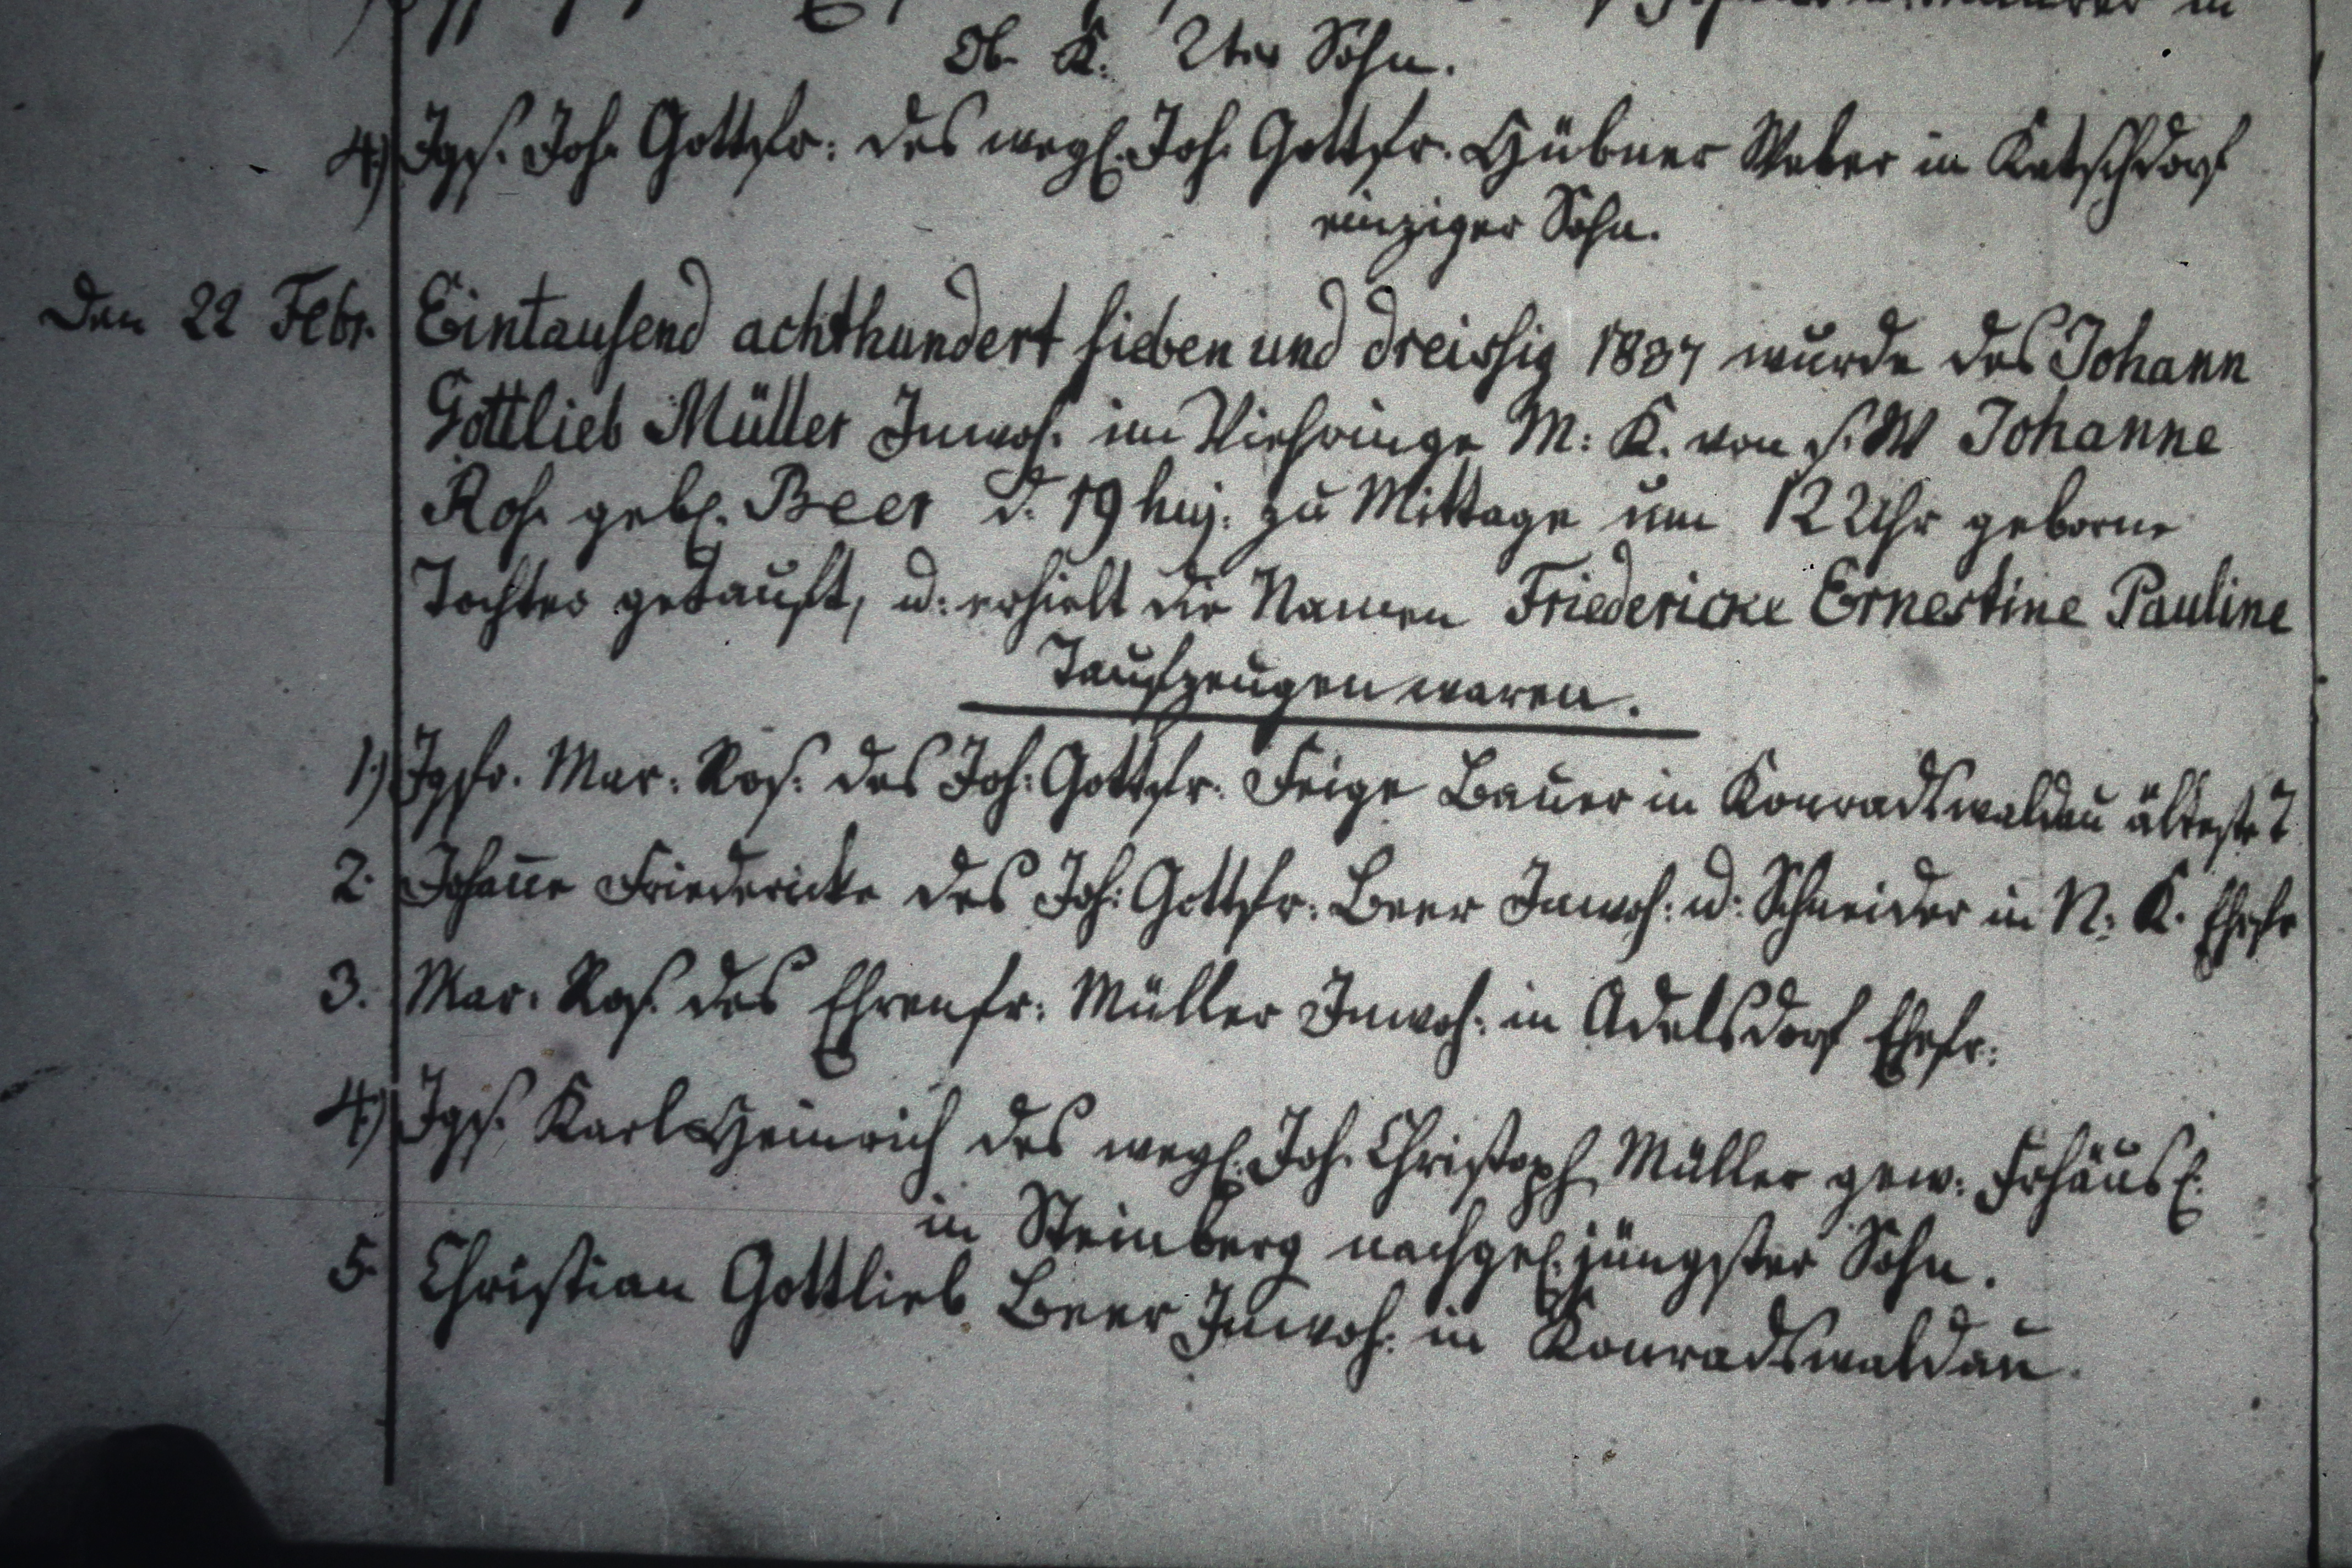 Ob. K. 2ter Sohn.
4.) Jgs. Joh. Gottfr: des wegl. Joh. Gottfr. Hübner Weber in Ketschdorf
einziger Sohn.
Den 22 Febr. Eintausend achthundert sieben und dreissig 1837 wurde des Johann
Gottlieb Müller Inwoh. im Viehringe M: K. von s. W Johanne
Ros. gebl. Beer d. 19 huj. zu Mittage um 12 Uhr geborne
Tochter getauft, u: erhielt die Namen Friedericke Ernestine Pauline
Taufzeugen waren.
1.) Jgfr. Mar: Ros: des Joh: Gottfr. Feige Bauer in Konradswaldau älteste T
2. Johañe Friedericke des Joh: Gottfr: Beer Inwoh: u: Schneider in N: K. Ehefr
3. Mar. Ros. des Ehrenfr: Müller Inwoh: in Adelsdorf Ehefr:
4.) Jgs. Karl Heinrich des wegl. Joh. Christoph Müller gew: Frhäusl:
in Steinberg nachgel. jüngster Sohn.
5. Christian Gottlieb Beer Inwoh: in Konradswaldau.